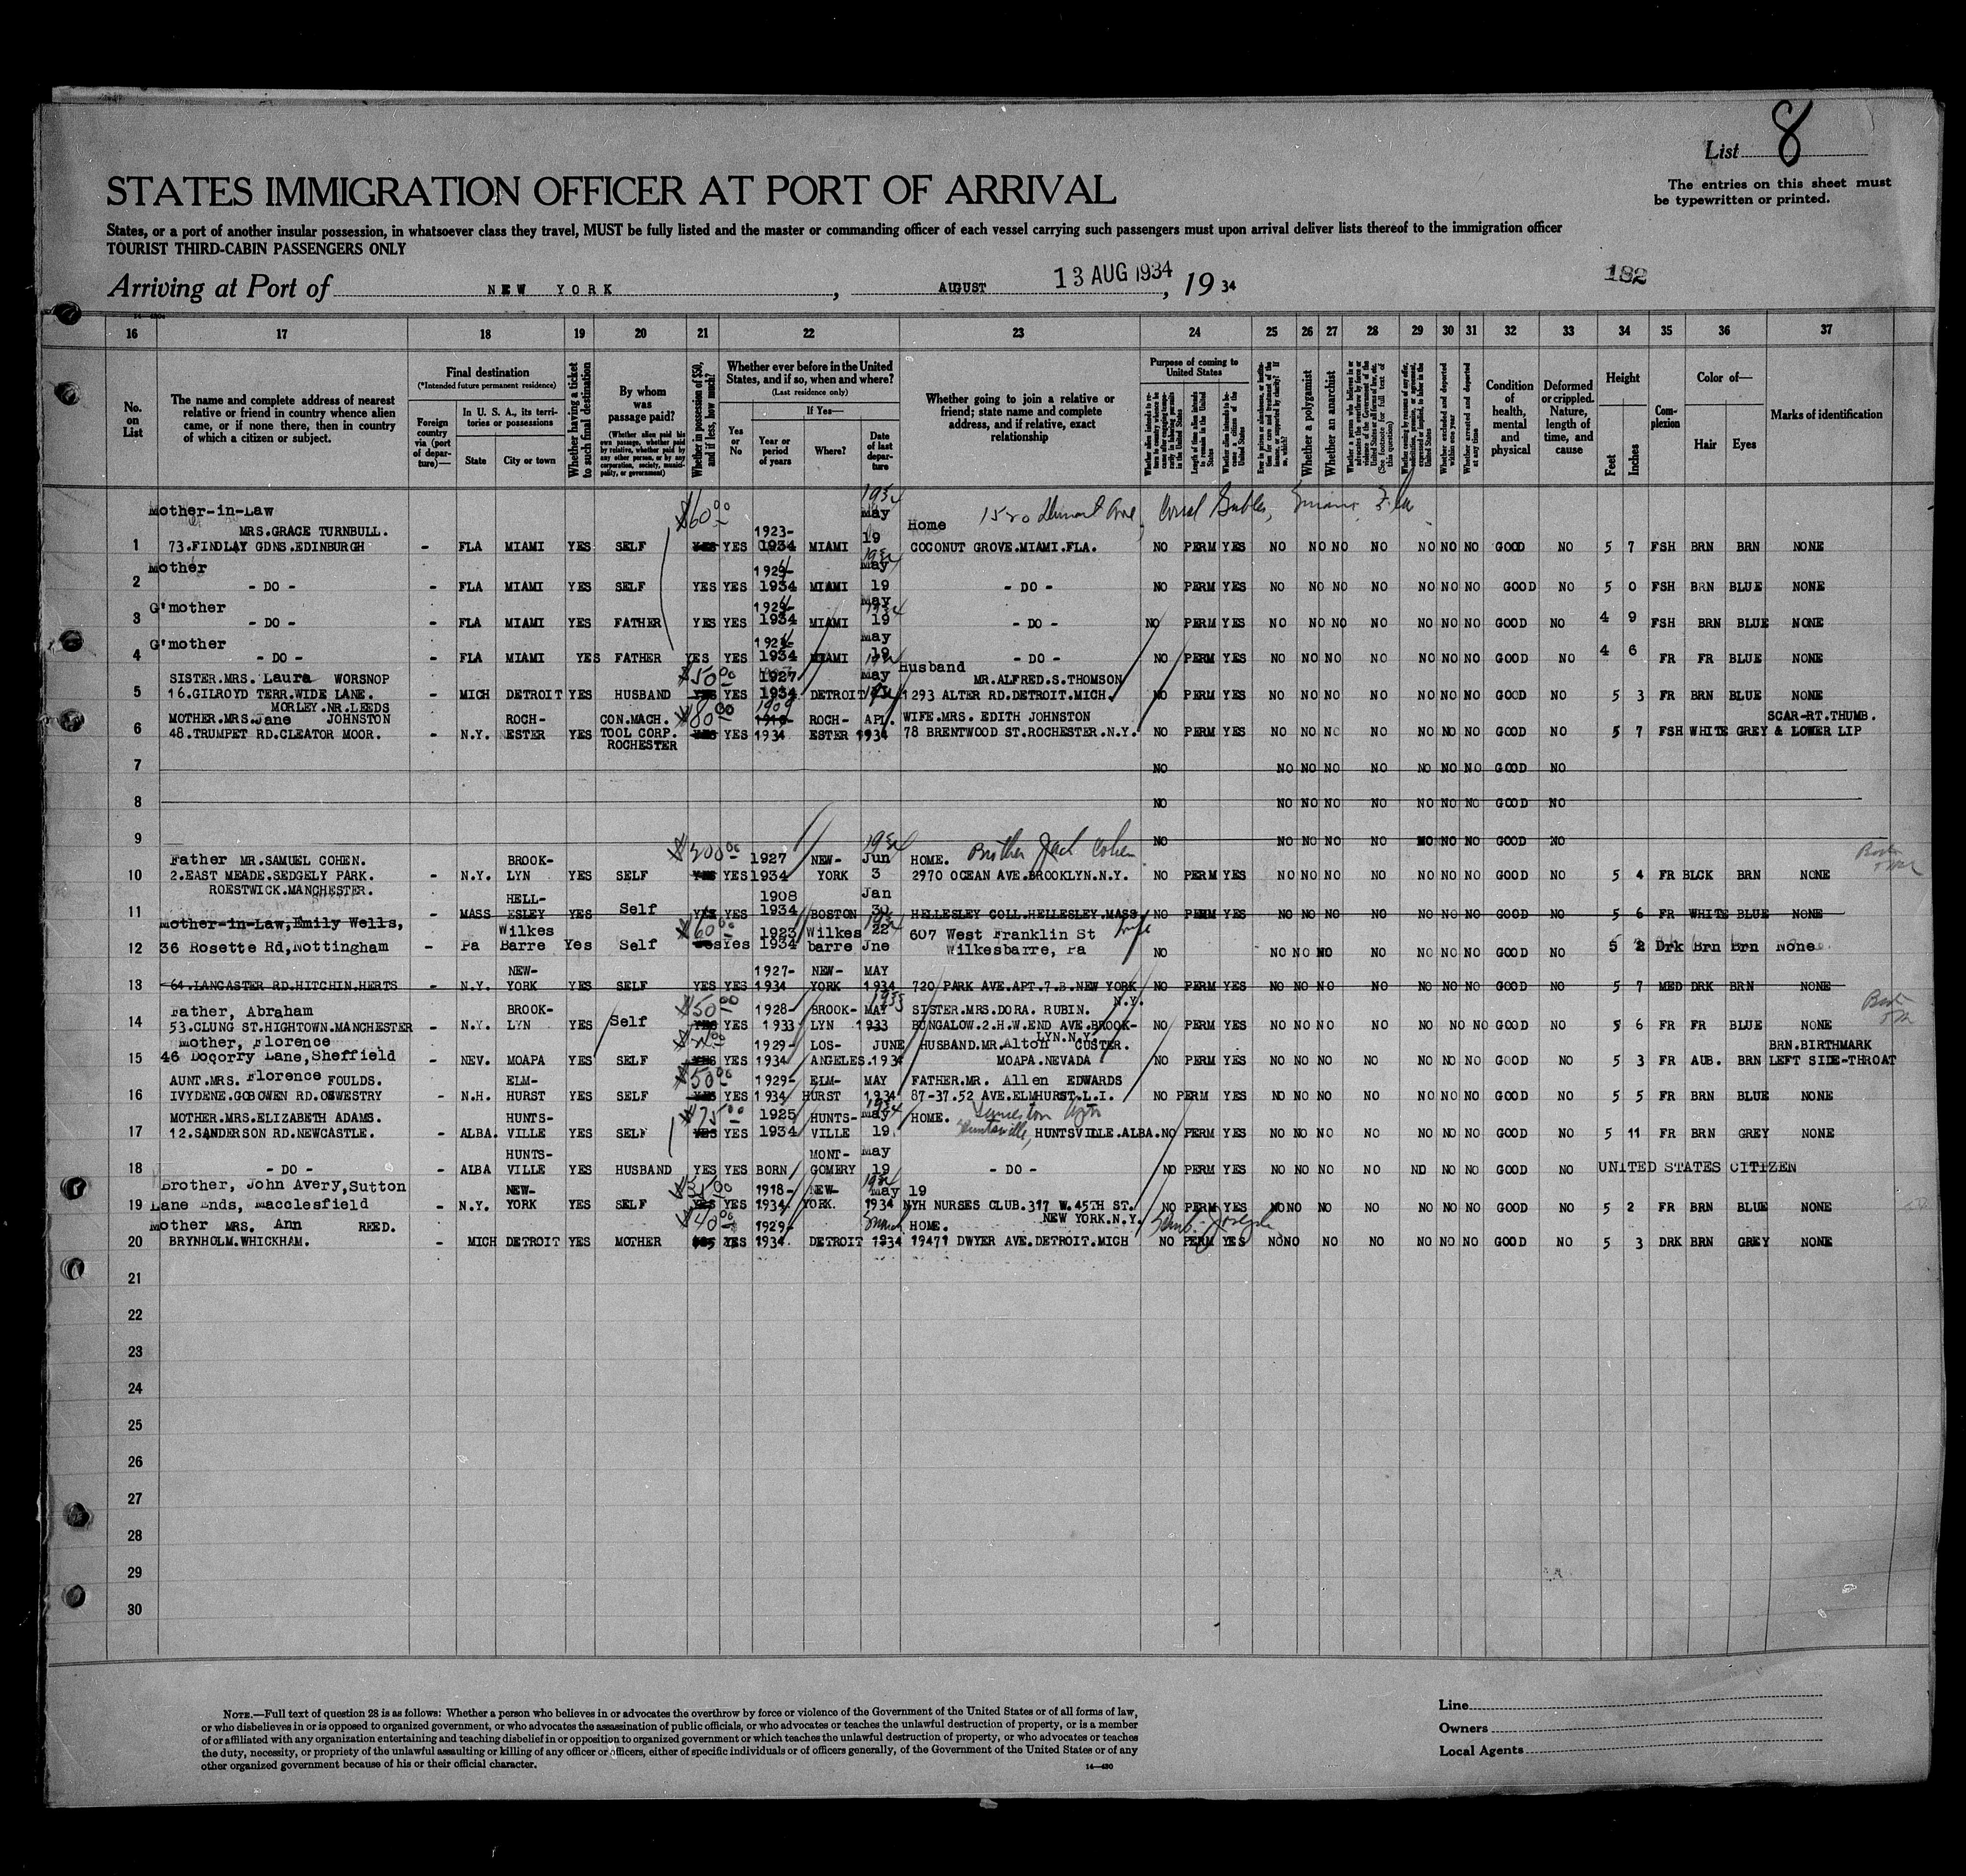 List 8
STATES IMMIGRATION OFFICER AT PORT OF ARRIVAL
The entries on this sheet must
be typewritten or printed.
States, or a port of another insular possession, in whatsoever class they travel, MUST be fully listed and the master or commanding officer of each vessel carrying such passengers must upon arrival deliver lists thereof to the immigration officer
TOURIST THIRD-CABIN PASSENGERS ONLY
Arriving at Port of NEW YORK, AUGUST 13 AUG 1934, 19 34
182
16 17 18 19 20 21 22 23 24 25 26 27 28 29 30 31 32 33 34 35 36 37
No. on List
The name and complete address of nearest relative or friend in country whence alien came, or if none there, then in country of which a citizen or subject.
Final destination
(*Intended future permanent residence)
Foreign country via (port of departure)—
In U. S. A., its territories or possessions
State
City or town
Whether having a ticket to such final destination
By whom was passage paid?
(Whether alien paid his own passage, whether paid by relative, whether paid by any other person, or by any corporation, society, municipality, or government)
Whether in possession of $50, and if less, how much?
Whether ever before in the United States, and if so, when and where?
(Last residence only)
Yes or No
If Yes—
Year or period of years
Where?
Date of last departure
Whether going to join a relative or friend; state name and complete address, and if relative, exact relationship
Purpose of coming to United States
Whether a polygamist
Whether an anarchist
Whether excluded and deported within one year
Whether arrested and deported at any time
Condition of health, mental and physical
Deformed or crippled. Nature, length of time, and cause
Height
Feet
Inches
Complexion
Color of—
Hair
Eyes
Marks of identification
Mother-in-Law $60.00 1934 May Coral Gables,
MRS.GRACE TURNBULL. 1923- Home
1 73.FINDLAY GDNS.EDINBURGH - FLA MIAMI YES SELF YES YES 1934 MIAMI 19 COCONUT GROVE.MIAMI.FLA. NO PERM YES NO NO NO NO NO NO NO GOOD NO 5 7 FSH BRN BRN NONE
Mother May
2 - DO - - FLA MIAMI YES SELF YES YES 1934 MIAMI 19 - DO - NO PERM YES NO NO NO NO NO NO NO GOOD NO 5 0 FSH BRN BLUE NONE
G'mother May
3 - DO - - FLA MIAMI YES FATHER YES YES 1934 MIAMI 19 - DO - NO PERM YES NO NO NO NO NO NO NO GOOD NO 4 9 FSH BRN BLUE NONE
G'mother May
4 - DO - - FLA MIAMI YES FATHER YES YES 1934 MIAMI 19 - DO - NO PERM YES NO NO NO NO NO NO NO GOOD NO 4 6 FR FR BLUE NONE
SISTER.MRS. Laura WORSNOP $50.00 1927 May Husband MR.ALFRED.S.THOMSON
5 16.GILROYD TERR.WIDE LANE. - MICH DETROIT YES HUSBAND YES YES 1934 DETROIT 1293 ALTER RD.DETROIT.MICH. NO PERM YES NO NO NO NO NO NO NO GOOD NO 5 3 FR BRN BLUE NONE
MORLEY.NR.LEEDS
MOTHER.MRS.Jane JOHNSTON ROCH- CON.MACH. $80.00 1909 ROCH- APL. WIFE.MRS. EDITH JOHNSTON SCAR-RT.THUMB.
6 48.TRUMPET RD.CLEATOR MOOR. - N.Y. ESTER YES TOOL CORP. YES YES 1934 ESTER 1934 78 BRENTWOOD ST.ROCHESTER.N.Y. NO PERM YES NO NO NO NO NO NO NO GOOD NO 5 7 FSH WHITE GREY & LOWER LIP
ROCHESTER
7 NO NO NO NO NO NO NO NO GOOD NO
8 NO NO NO NO NO NO NO NO GOOD NO
9 NO NO NO NO NO NO NO NO GOOD NO
Father MR.SAMUEL COHEN. BROOK- 1927 NEW- Jun 1934 HOME. Brother Jack Cohen
10 2.EAST MEADE.SEDGELY PARK. - N.Y. LYN YES SELF YES YES 1934 YORK 3 2970 OCEAN AVE.BROOKLYN.N.Y. NO PERM YES NO NO NO NO NO NO NO GOOD NO 5 4 FR BLCK BRN NONE
ROESTWICK.MANCHESTER.
HELL- 1908 Jan
11 - MASS ESLEY YES Self YES YES 1934 BOSTON 30 HELLESLEY COLL.HELLESLEY.MASS. NO PERM YES NO NO NO NO NO NO NO GOOD NO 5 6 FR WHITE BLUE NONE
Mother-in-Law,Emily Wells, Wilkes $60.00 1923 Wilkes 22 607 West Franklin St
12 36 Rosette Rd,Nottingham - Pa Barre Yes Self Yes Yes 1934 barre Jne Wilkesbarre, Pa NO NO NO NO NO NO NO NO GOOD NO 5 2 Drk Brn Brn None
NEW- 1927- NEW- MAY
13 64.LANCASTER RD.HITCHIN.HERTS - N.Y. YORK YES SELF YES YES 1934 YORK 1934 720 PARK AVE.APT.7.B.NEW YORK NO PERM YES NO NO NO NO NO NO NO GOOD NO 5 7 MED DRK BRN NONE
N.Y.
Father, Abraham BROOK- $50.00 1928- BROOK- MAY SISTER.MRS.DORA. RUBIN.
14 53.CLUNG ST.HIGHTOWN.MANCHESTER - N.Y. LYN YES Self YES YES 1933 LYN 1933 BUNGALOW.2.H.W.END AVE.BROOK- NO PERM YES NO NO NO NO NO NO NO GOOD NO 5 6 FR FR BLUE NONE
LYN.N.Y.
Mother, Florence 1929- LOS- JUNE HUSBAND.MR.Alton CUSTER. BRN.BIRTHMARK
15 46 Doqorry Lane,Sheffield - NEV. MOAPA YES SELF YES YES 1934 ANGELES. 1934 MOAPA.NEVADA NO PERM YES NO NO NO NO NO NO NO GOOD NO 5 3 FR AUB. BRN LEFT SIDE-THROAT
AUNT.MRS. Florence FOULDS. ELM- $50.00 1929- ELM- MAY FATHER.MR. Allen EDWARDS
16 IVYDENE.GOBOWEN RD.OSWESTRY - N.H. HURST YES SELF YES YES 1934 HURST 1934 87-37.52 AVE.ELMHURST.L.I. NO PERM YES NO NO NO NO NO NO NO GOOD NO 5 5 FR BRN BLUE NONE
MOTHER.MRS.ELIZABETH ADAMS. HUNTS- $75.00 1925 HUNTS- May HOME.
17 12.SANDERSON RD.NEWCASTLE. - ALBA. VILLE YES SELF YES YES 1934 VILLE 19 Huntsville, HUNTSVILLE.ALBA. NO PERM YES NO NO NO NO NO NO NO GOOD NO 5 11 FR BRN GREY NONE
HUNTS- MONT- May
18 - DO - - ALBA VILLE YES HUSBAND YES YES BORN GOMERY 19 - DO - NO PERM YES NO NO NO NO NO NO NO GOOD NO UNITED STATES CITIZEN
Brother, John Avery,Sutton NEW- 1918- NEW- May 19
19 Lane Ends, Macclesfield - N.Y. YORK YES SELF YES YES 1934 YORK. 1934 NYH NURSES CLUB.317 W.45TH ST. NO PERM YES NO NO NO NO NO NO NO GOOD NO 5 2 FR BRN BLUE NONE
NEW YORK.N.Y.
Mother MRS. Ann REED. $40.00 1929- HOME.
20 BRYNHOLM.WHICKHAM. - MICH DETROIT YES MOTHER YES YES 1934 DETROIT 1934 19471 DWYER AVE.DETROIT.MICH NO PERM YES NO NO NO NO NO NO NO GOOD NO 5 3 DRK BRN GREY NONE
21
22
23
24
25
26
27
28
29
30
NOTE.—Full text of question 28 is as follows: Whether a person who believes in or advocates the overthrow by force or violence of the Government of the United States or of all forms of law,
or who disbelieves in or is opposed to organized government, or who advocates the assassination of public officials, or who advocates or teaches the unlawful destruction of property, or is a member
of or affiliated with any organization entertaining and teaching disbelief in or opposition to organized government or which teaches the unlawful destruction of property, or who advocates or teaches
the duty, necessity, or propriety of the unlawful assaulting or killing of any officer or officers, either of specific individuals or of officers generally, of the Government of the United States or of any
other organized government because of his or their official character.
14—430
Line
Owners
Local Agents